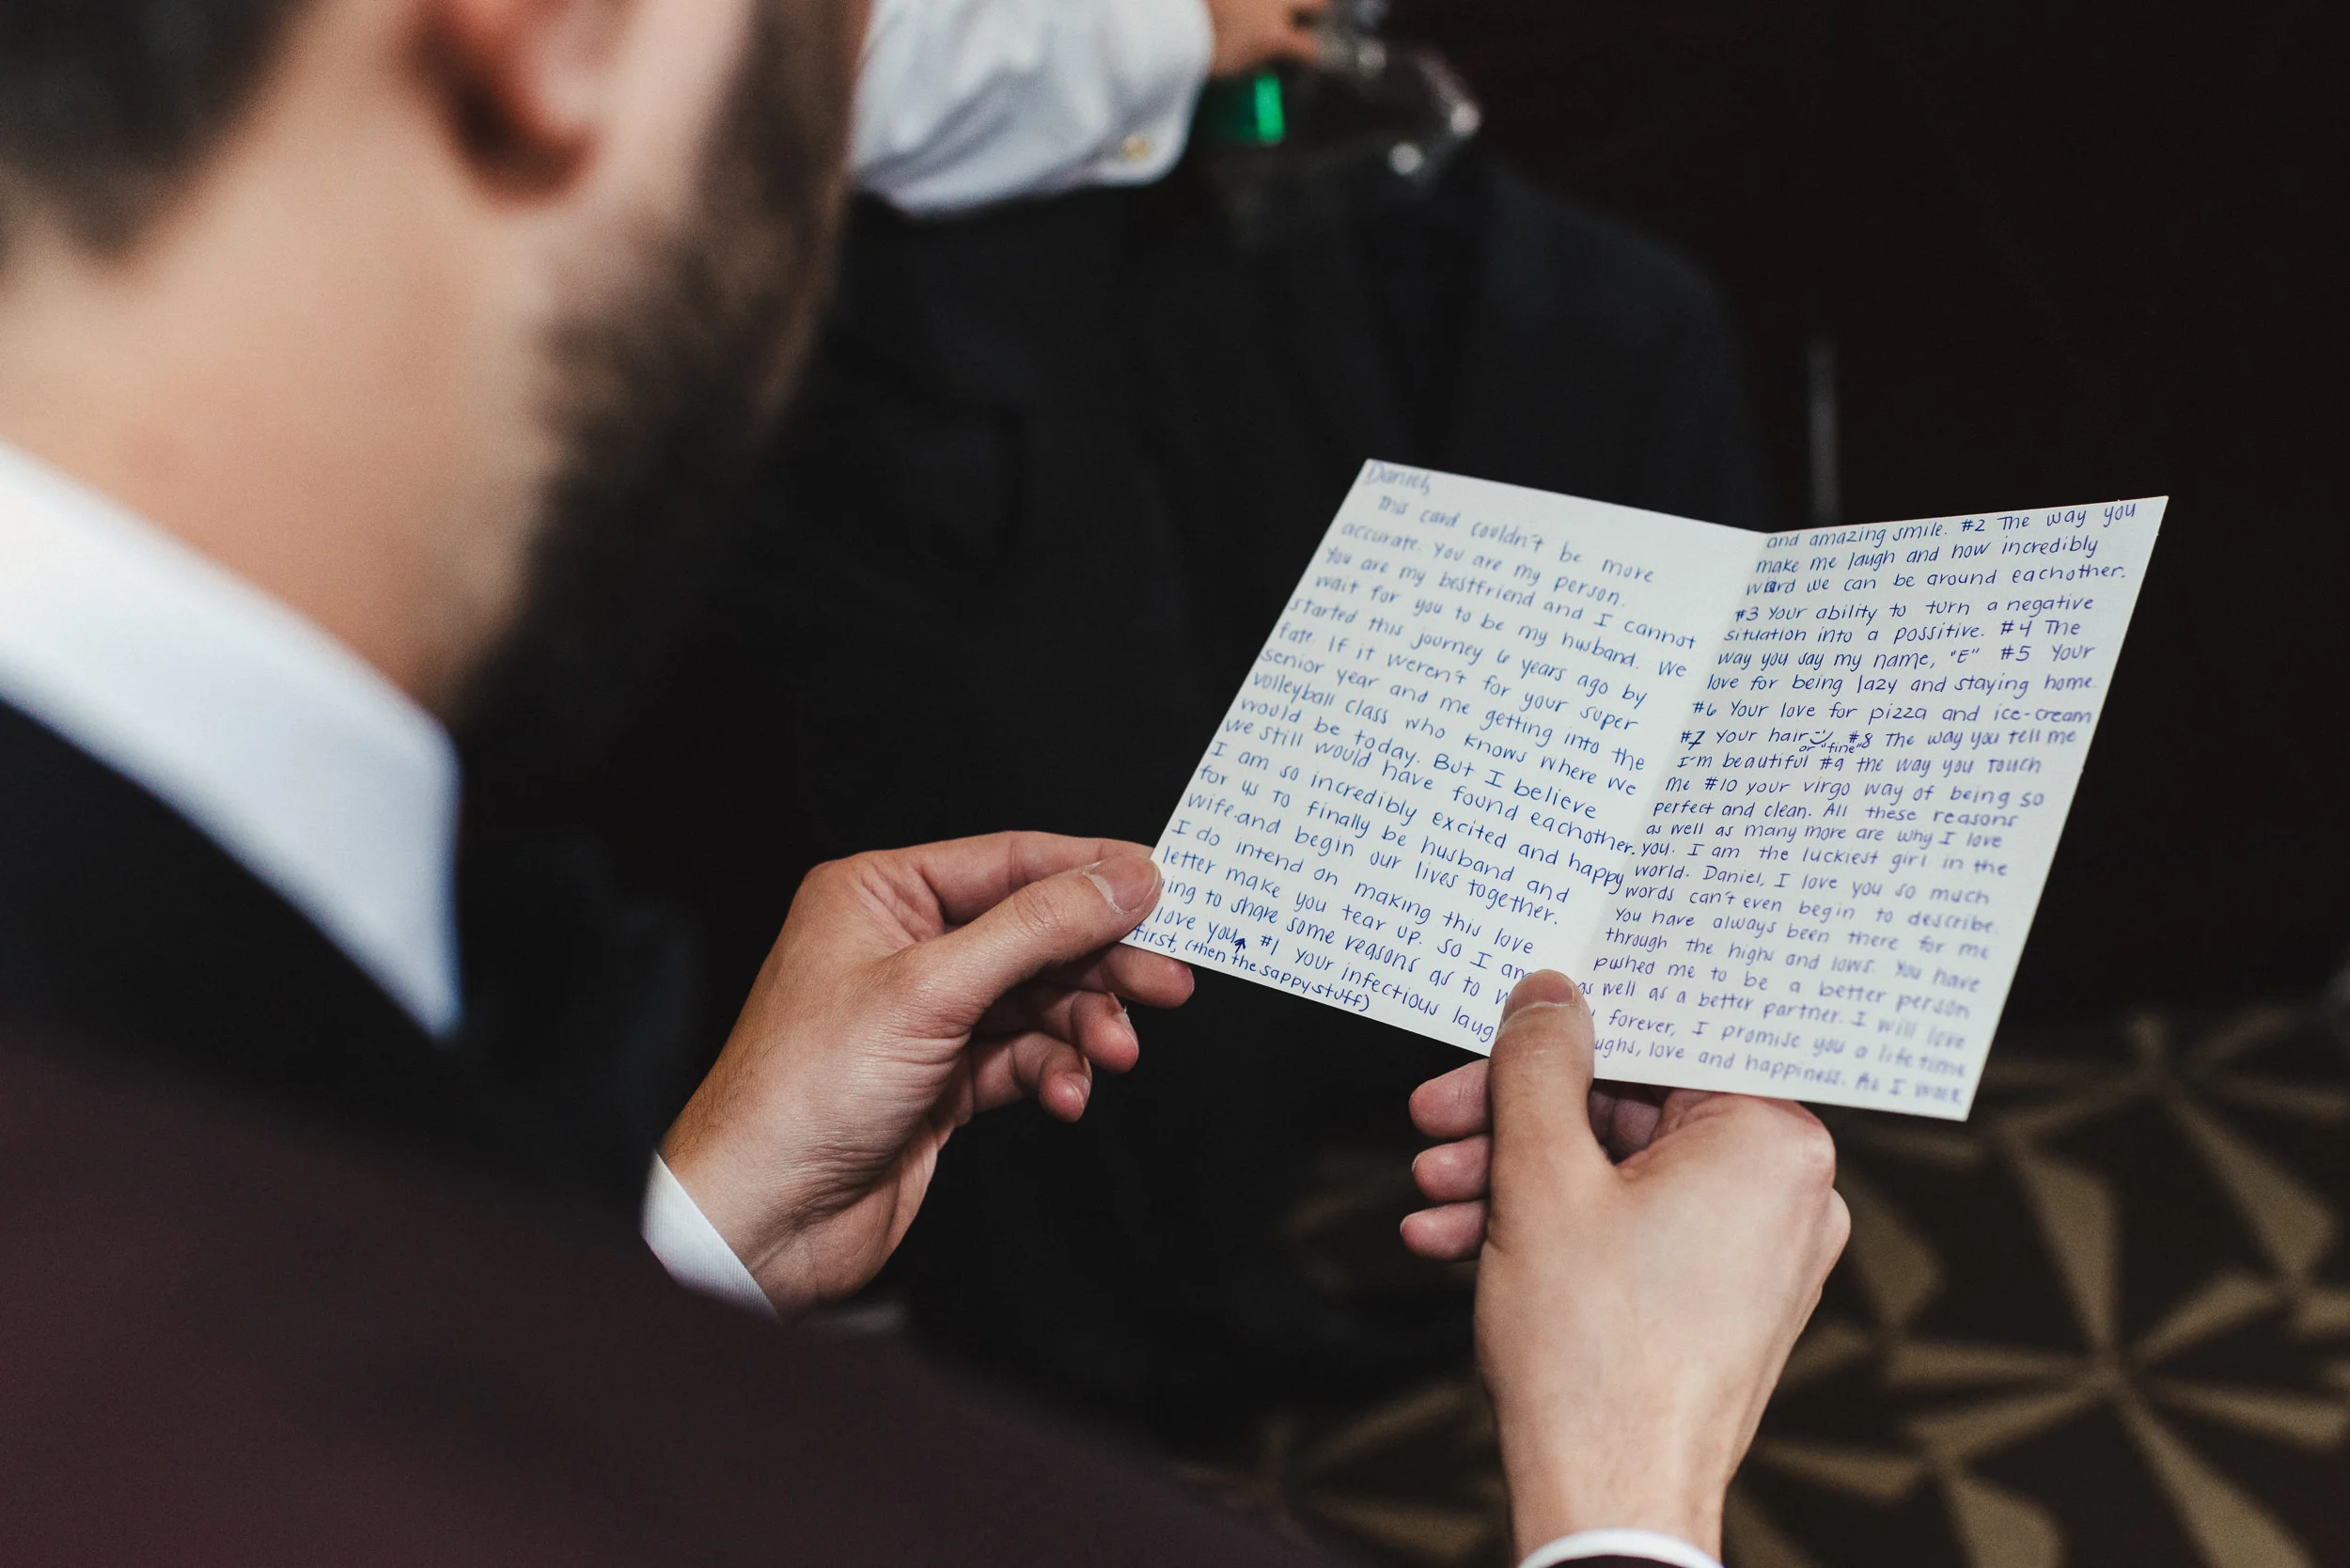 Daniel,
This card couldn't be more
accurate. You are my person.
You are my bestfriend and I cannot
wait for you to be my husband. We
started this journey 6 years ago by
fate. If it weren't for your super
senior year and me getting into the
volleyball class who knows where we
would be today. But I believe
we still would have found eachother.
I am so incredibly excited and happy
for us to finally be husband and
wife and begin our lives together.
I do intend on making this love
letter make you tear up. So I am
ing to share some reasons as to
love you #1 Your infectious laug
first, (then the sappy stuff)
and amazing smile. #2 The way you
make me laugh and how incredibly
we can be around eachother.
#3 Your ability to turn a negative
situation into a possitive. #4 The
way you say my name, "E" #5 Your
love for being lazy and staying home.
#6 Your love for pizza and ice-cream
#7 Your hair #8 The way you tell me
or "fine"
I'm beautiful #9 the way you touch
me #10 your virgo way of being so
perfect and clean. All these reasons
as well as many more are why I love
you. I am the luckiest girl in the
world. Daniel, I love you so much
words can't even begin to describe.
You have always been there for me
through the highs and lows. You have
pushed me to be a better person
as well as a better partner. I will love
forever, I promise you a lifetime
ughs, love and happiness. As I